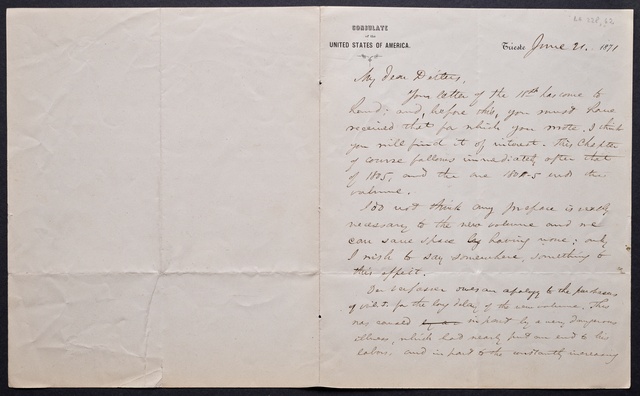 CONSULATE
of the
UNITED STATES OF AMERICA.
Trieste June 21. 1871
My dear Deiters,
Your letter of the 18th has come to
hand; and, before this, you must have
received that for which you wrote. I think
you will find it of interest. This Chapter
of course follows immediately after that
of 1805, and the one 1801-5 ends the
volume.
I do not think any preface is really
necessary to the new volume and we
can save space by having none; only
I wish to say somewhere, something to
this effect.
Der Verfasser owes an apology to the purchasers
of vol. I. for the long delay of the new volume. This
was caused in part by a very dangerous
illness, which had nearly put an end to his
labors, and in part to the constantly increasing